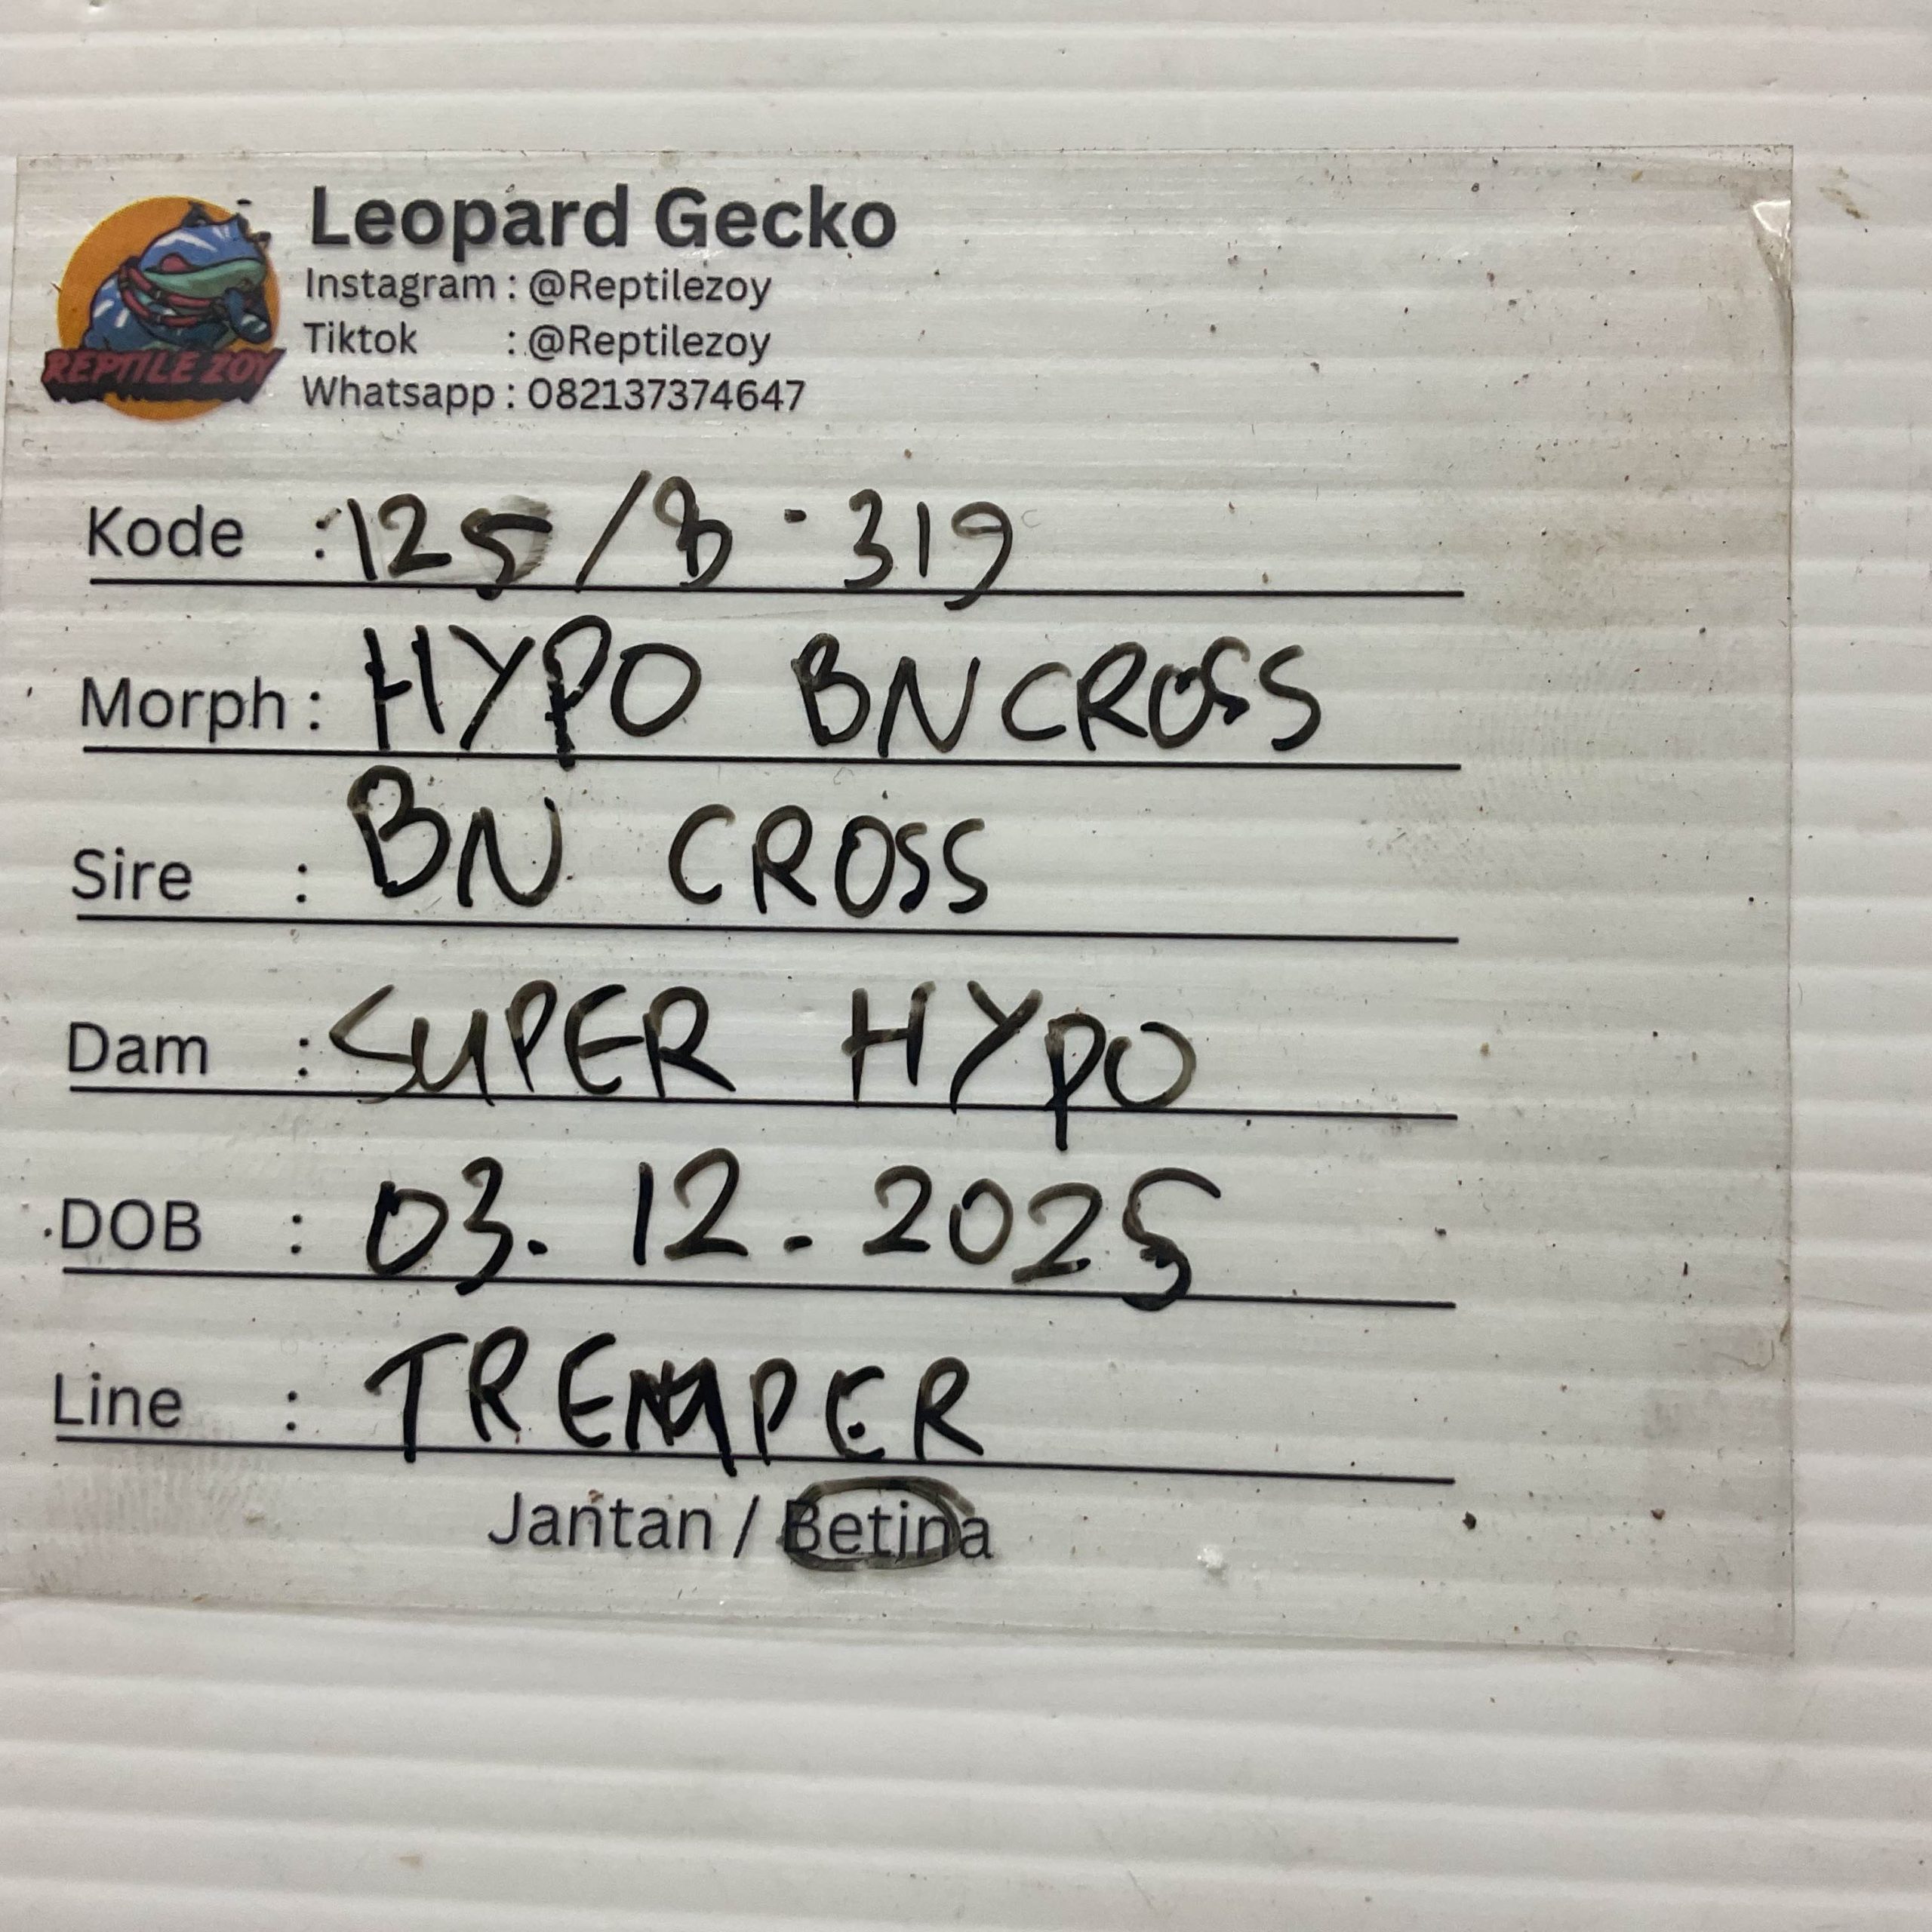 Leopard Gecko
Instagram : @Reptilezoy
Tiktok : @Reptilezoy
Whatsapp : 082137374647
REPTILE ZOY
Kode : 125/8-319
Morph : HYPO BN CROSS
Sire : BN CROSS
Dam : SUPER HYPO
DOB : 03.12.2025
Line : TREMPER
Jantan / Betina